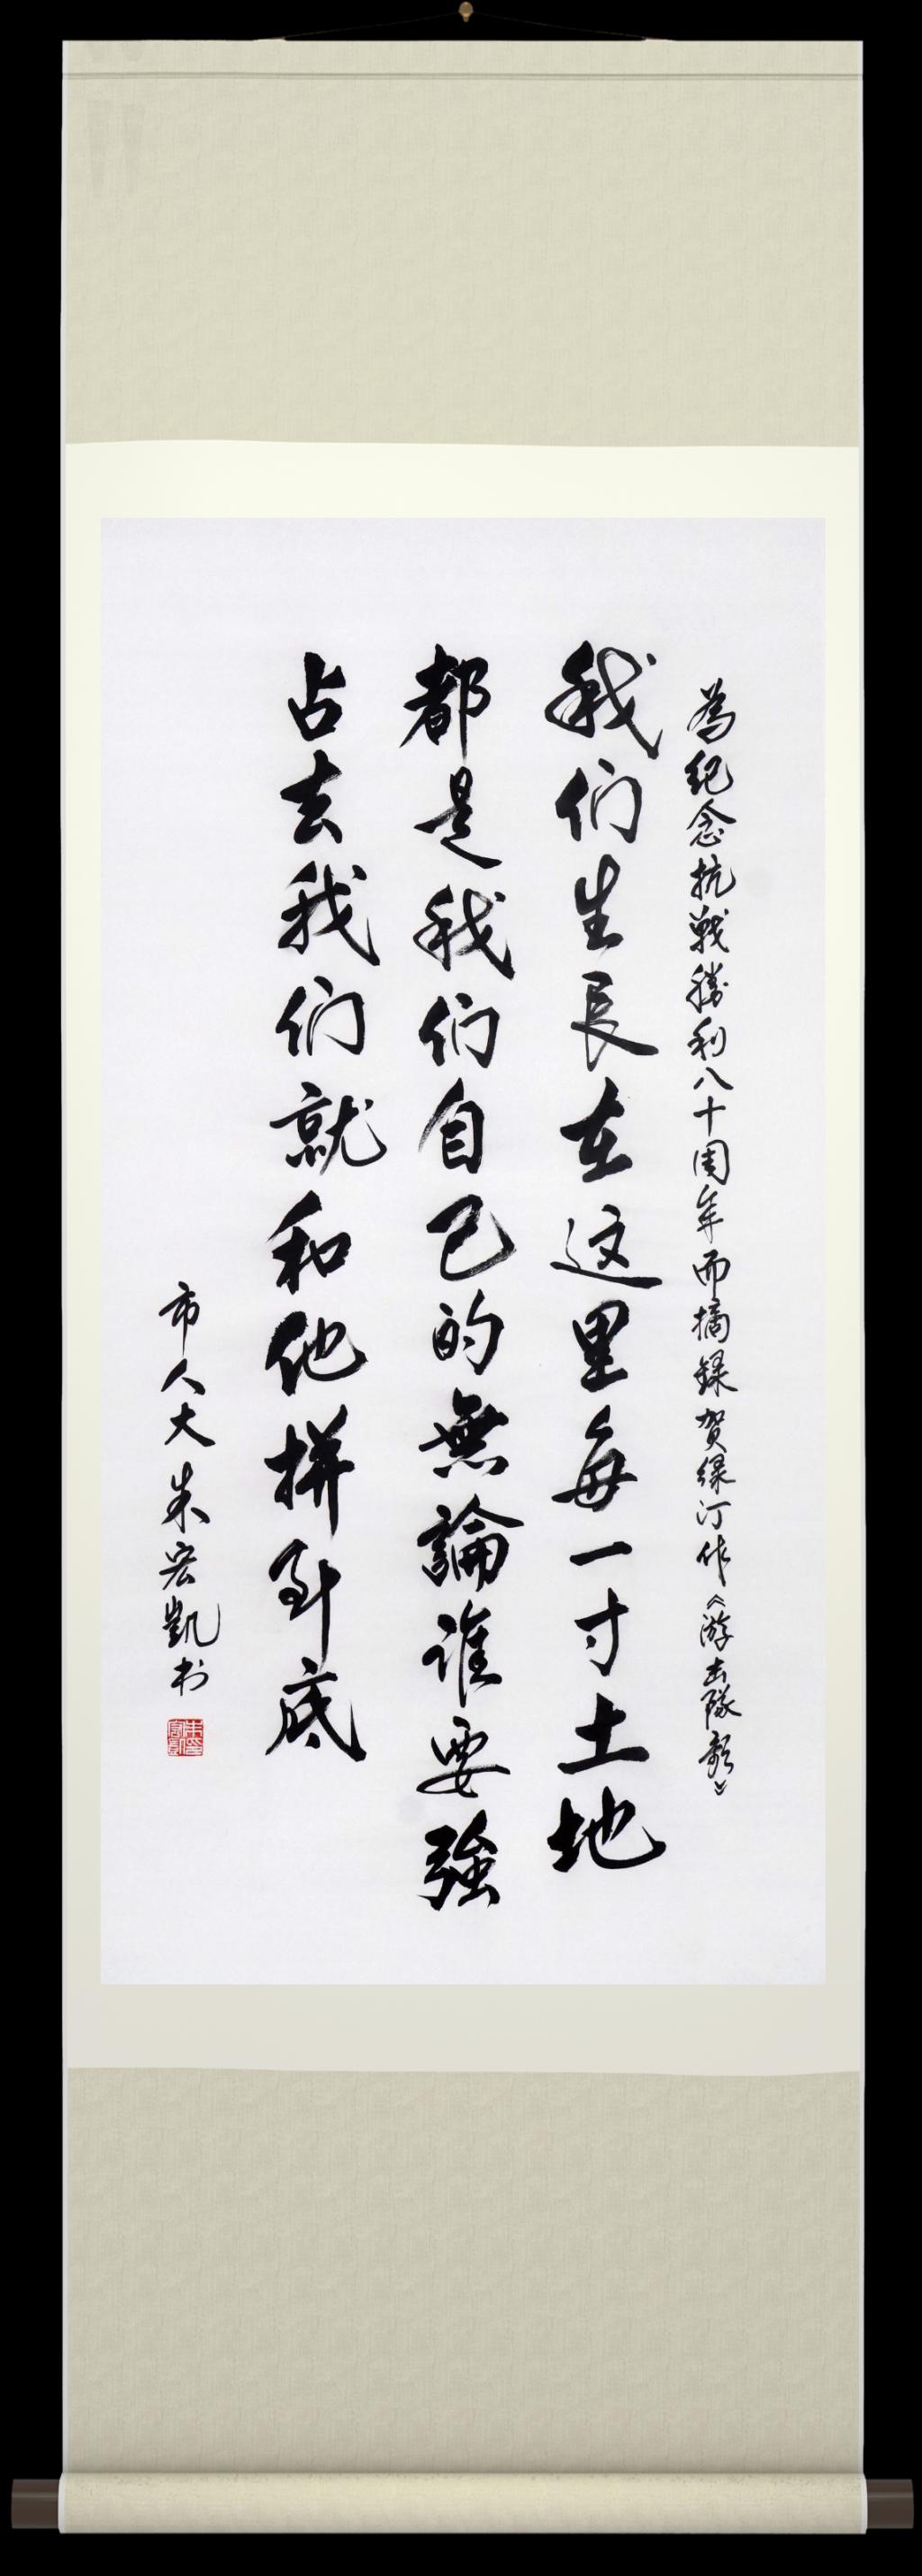 為纪念抗戰勝利八十周年而摘録贺绿汀作《游击隊歌》
我们生長在这里每一寸土地
都是我们自己的無論谁要強
占去我们就和他拼到底
市人大朱宏凱书